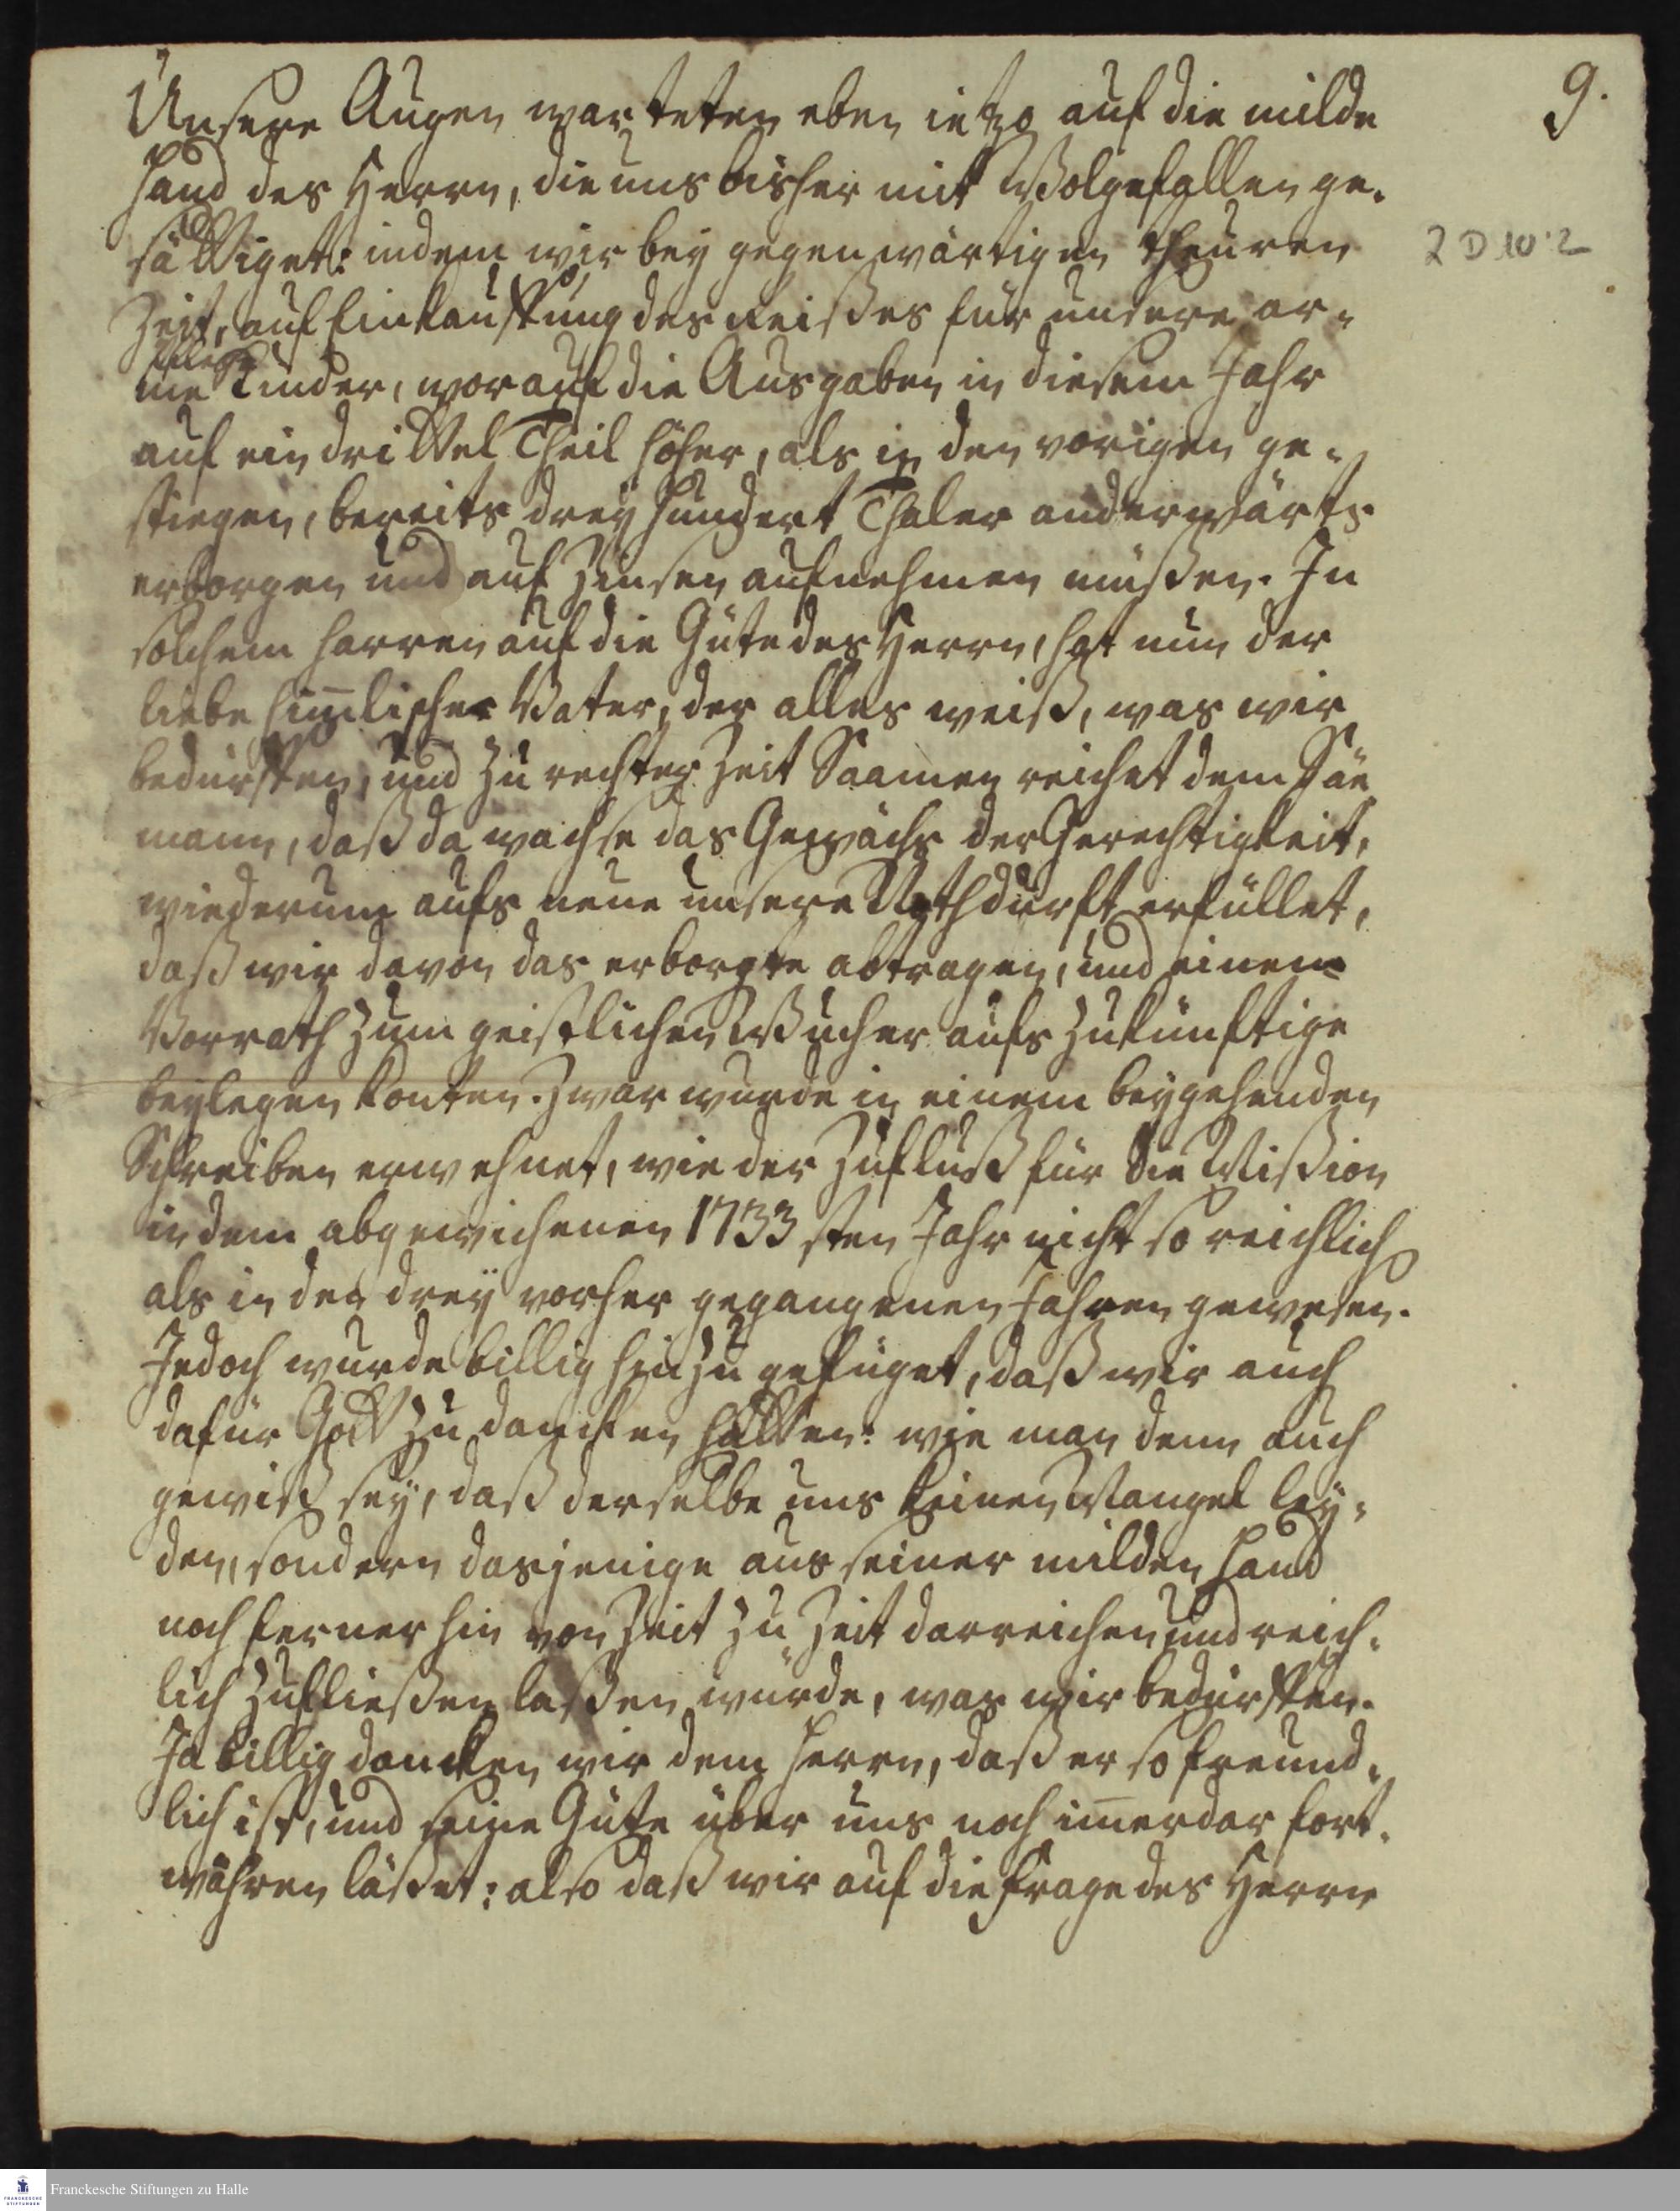 9.
Unsere Augen warteten eben ietzo auf die milde
Hand des Herrn, die uns bisher mit Wolgefallen ge-
sättiget: indem wir bey gegenwärtigen theuren
2 D 10:2
Zeit, auf Einkauffung des Reißes für unsere ar-
me Kinder, worauf die Ausgaben in diesem Jahr
auf ein drittel Theil höher, als in den vorigen ge-
stiegen, bereits drey hundert Thaler anderwärts
erborgen und auf Zinsen aufnehmen müßen. In
solchem Harren auf die Güte des Herrn, hat nun der
liebe him̅lische Vater, der alles weiß, was wir
bedürffen, und zu rechter Zeit Saamen reichet dem Säe
mann, daß da wachse das Gewächs der Gerechtigkeit,
wiederum aufs neue unsere Nothdurft erfüllet,
daß wir davon das erborgte abtragen, und einen
Vorrath zum geistlichen Wucher aufs zukünftige
beylegen konten. Zwar wurde in einem beygehenden
Schreiben erwehnet, wie der Zufluß für die Mißion
in dem abgewichenen 1733 sten Jahr nicht so reichlich
als in den drey vorher gegangenen Jahren gewesen.
Jedoch wurde billig hinzu gefüget, daß wir auch
dafür Gott zu dancken hätten: wie man denn auch
gewiß sey, daß derselbe uns keinen Mangel ley-
den, sondern dasjenige aus seiner milden Hand
noch ferner hin von Zeit zu Zeit darreichen und reich-
lich zufließen laßen würde, was wir bedürffen.
Ja billig dancken wir dem Herrn, daß er so freund-
lich ist, und seine Güte über uns noch im̅erdar fort-
währen läßet: also daß wir auf die Frage des Herrn
Franckesche Stiftungen zu Halle